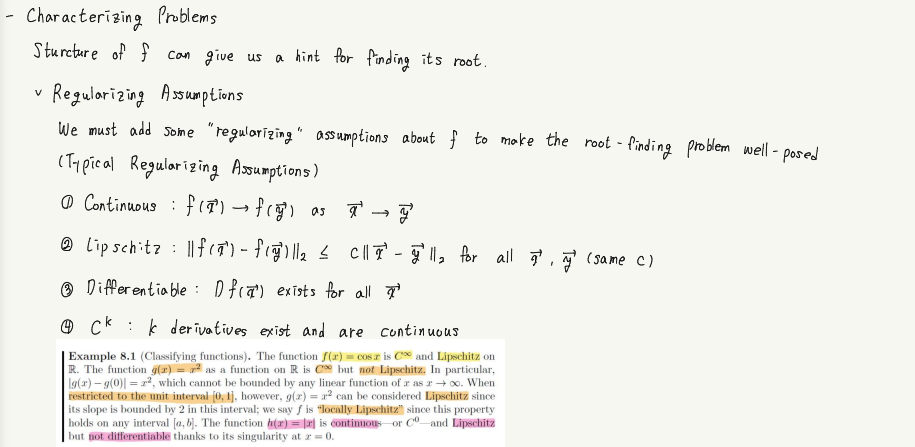 - Characterizing Problems
Sturcture of f can give us a hint for finding its root.
v Regularizing Assumptions
We must add some "regularizing" assumptions about f to make the root-finding problem well-posed
(Typical Regularizing Assumptions)
① Continuous : f(x⃗) → f(y⃗) as x⃗ → y⃗
② Lipschitz : ||f(x⃗) - f(y⃗)||₂ ≤ c||x⃗ - y⃗||₂ for all x⃗, y⃗ (same c)
③ Differentiable : Df(x⃗) exists for all x⃗
④ Cᵏ : k derivatives exist and are continuous
Example 8.1 (Classifying functions). The function f(x) = cos x is C^∞ and Lipschitz on
ℝ. The function g(x) = x² as a function on ℝ is C^∞ but not Lipschitz. In particular,
|g(x) − g(0)| = x², which cannot be bounded by any linear function of x as x → ∞. When
restricted to the unit interval [0, 1], however, g(x) = x² can be considered Lipschitz since
its slope is bounded by 2 in this interval; we say f is "locally Lipschitz" since this property
holds on any interval [a, b]. The function h(x) = |x| is continuous—or C⁰—and Lipschitz
but not differentiable thanks to its singularity at x = 0.